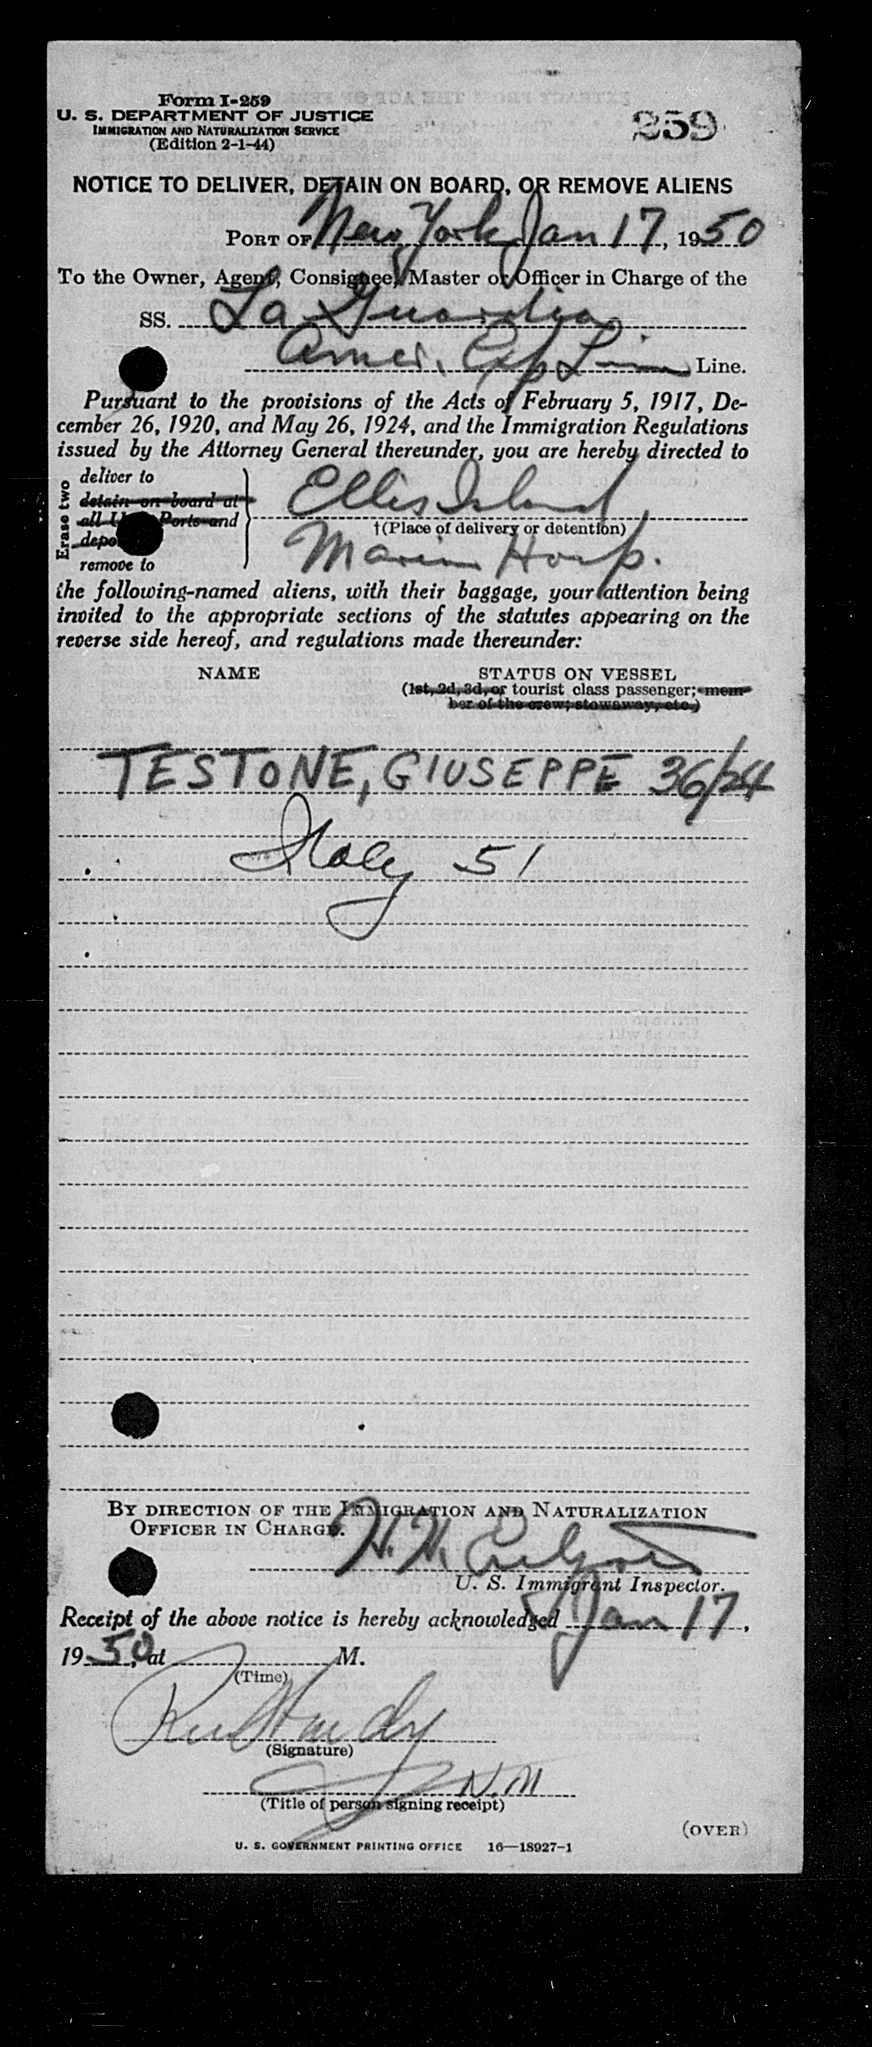 Form I-259
U. S. DEPARTMENT OF JUSTICE
IMMIGRATION AND NATURALIZATION SERVICE
(Edition 2-1-44)
259
NOTICE TO DELIVER, DETAIN ON BOARD, OR REMOVE ALIENS
PORT OF New York Jan 17, 1950
To the Owner, Agent, Consignee, Master or Officer in Charge of the
SS. La Guardia
Amer. Exp Line Line.
Pursuant to the provisions of the Acts of February 5, 1917, De-
cember 26, 1920, and May 26, 1924, and the Immigration Regulations
issued by the Attorney General thereunder, you are hereby directed to
Erase two
deliver to
detain on board at
all U. S. Ports and
depo
remove to
Ellis Island
†(Place of delivery or detention)
Marine Hosp.
the following-named aliens, with their baggage, your attention being
invited to the appropriate sections of the statutes appearing on the
reverse side hereof, and regulations made thereunder:
NAME
STATUS ON VESSEL
(1st, 2d, 3d, or tourist class passenger; mem-
ber of the crew; stowaway, etc.)
TESTONE, GIUSEPPE 36/24
Italy 51
BY DIRECTION OF THE IMMIGRATION AND NATURALIZATION
OFFICER IN CHARGE.
H. H.
U. S. Immigrant Inspector.
Receipt of the above notice is hereby acknowledged Jan 17,
1950, at M.
(Time)
Hardy
(Signature)
N.M
(Title of person signing receipt)
(OVER)
U. S. GOVERNMENT PRINTING OFFICE 16—18927-1